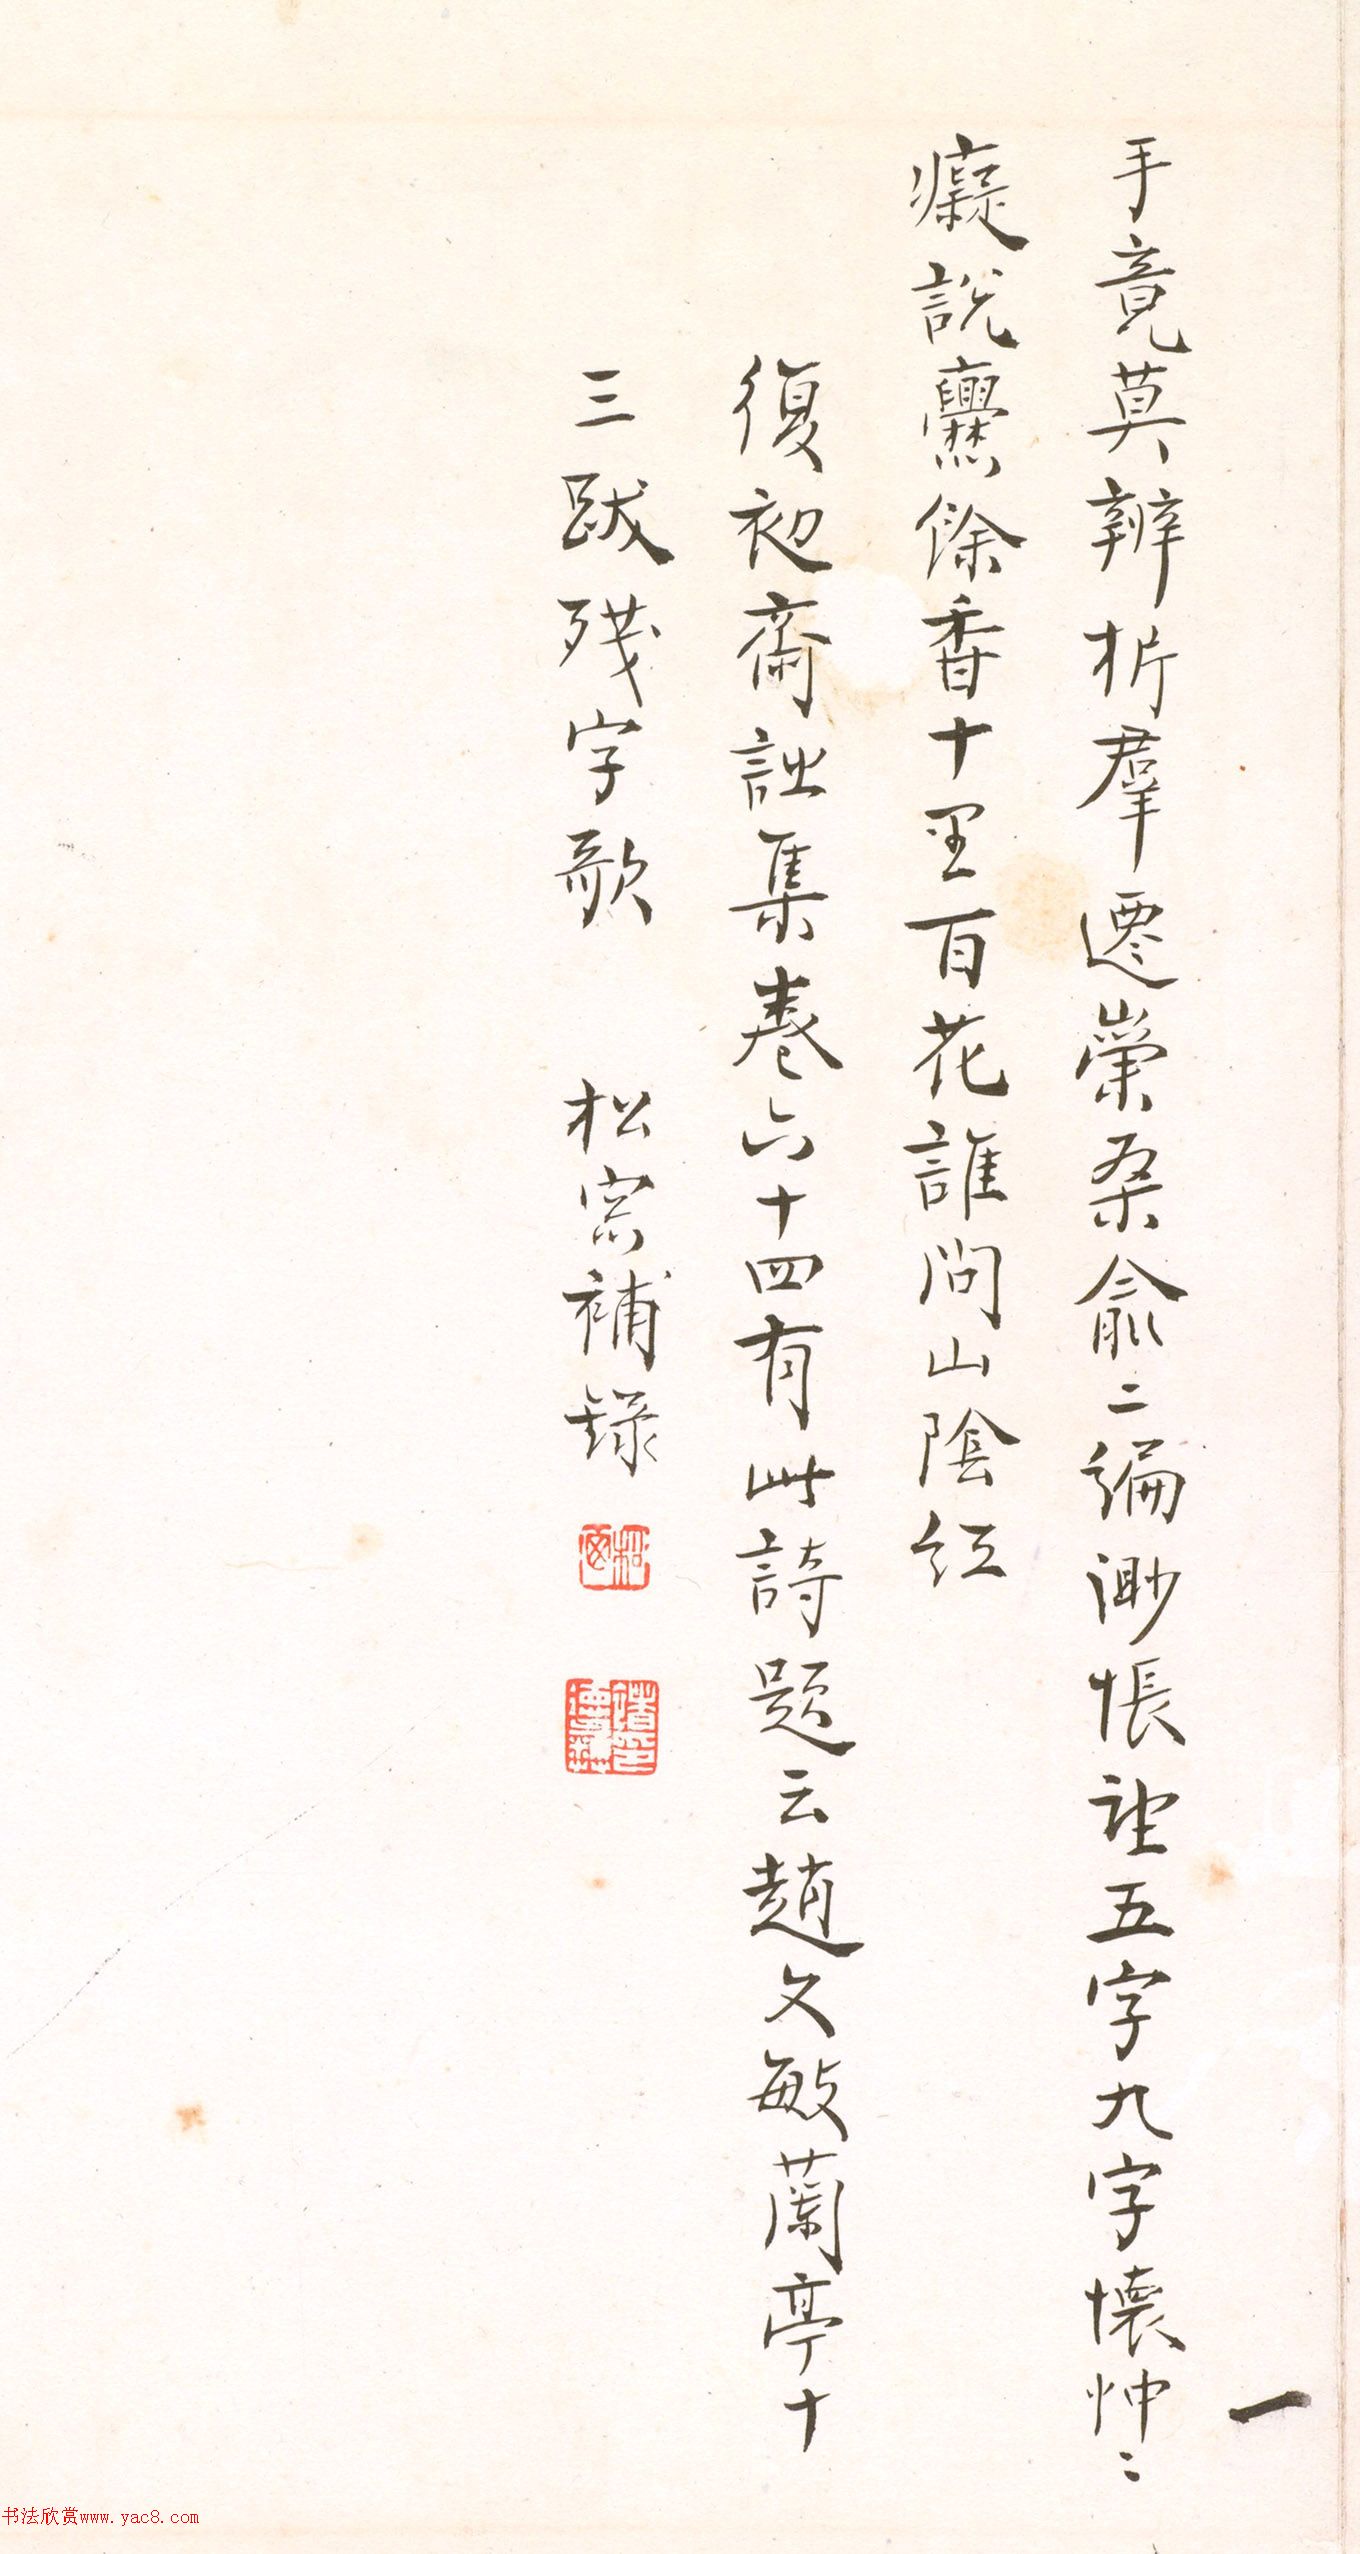 一
手竟莫辨析羣遷崇桑俞二編渺悵望五字九字懷忡〻
癡說爨餘香十里百花誰問山陰紅
復初齋詩集卷六十四有此詩題云趙文敏蘭亭十
三跋殘字歌 松窗補錄
松窗
书法欣赏www.yac8.com